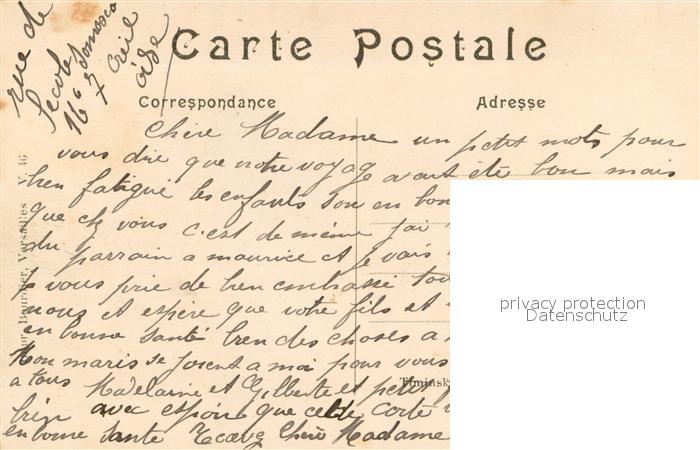 rue de
l'ecole
16
7 Creil
oise
Carte Postale
Correspondance
Adresse
Chère Madame un petit mots pour
vous dire que notre voyage avant été bon mais
bien fatigué les enfants son en bon
que chez vous c'est de même j'ai
du parrain a maurice et je vais
je vous prie de bien embrassé tou
nous et espère que votre fils et
en bonne santé bien des choses a
Mon maris se joient a moi pour vous
a tous Madelaine et Gilberte et petit
bien avec espoir que cette carte
en bonne santé Recevez Chère Madame
Versailles
46
privacy protection
Datenschutz